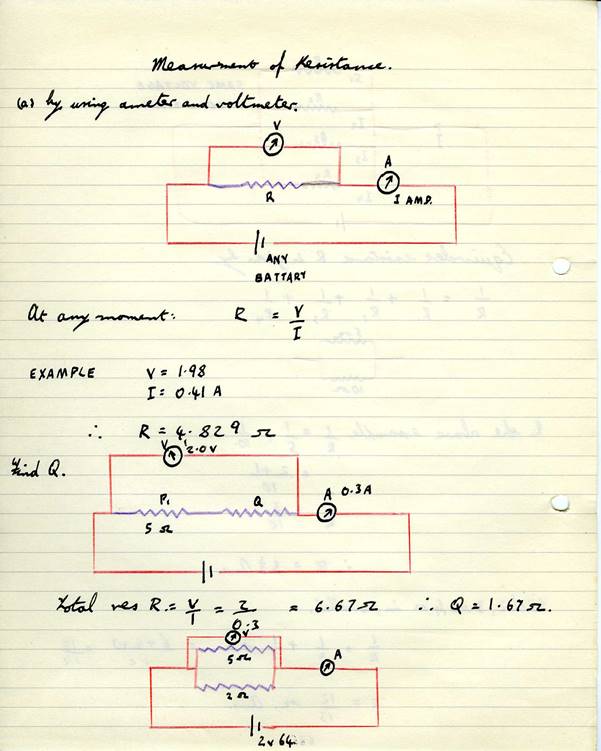 Measurment of Resistance.
(a) by using ameter and voltmeter.
V
A
R
I AMP.
ANY
BATTARY
At any moment: R = V/I
EXAMPLE V = 1.98
I = 0.41 A
∴ R = 4.829 Ω
V 2.0V
Find Q.
P₁ Q A 0.3A
5 Ω
Total res R = V/I = 2/0.3 = 6.67Ω ∴ Q = 1.67Ω.
V
5Ω A
2Ω
2v64